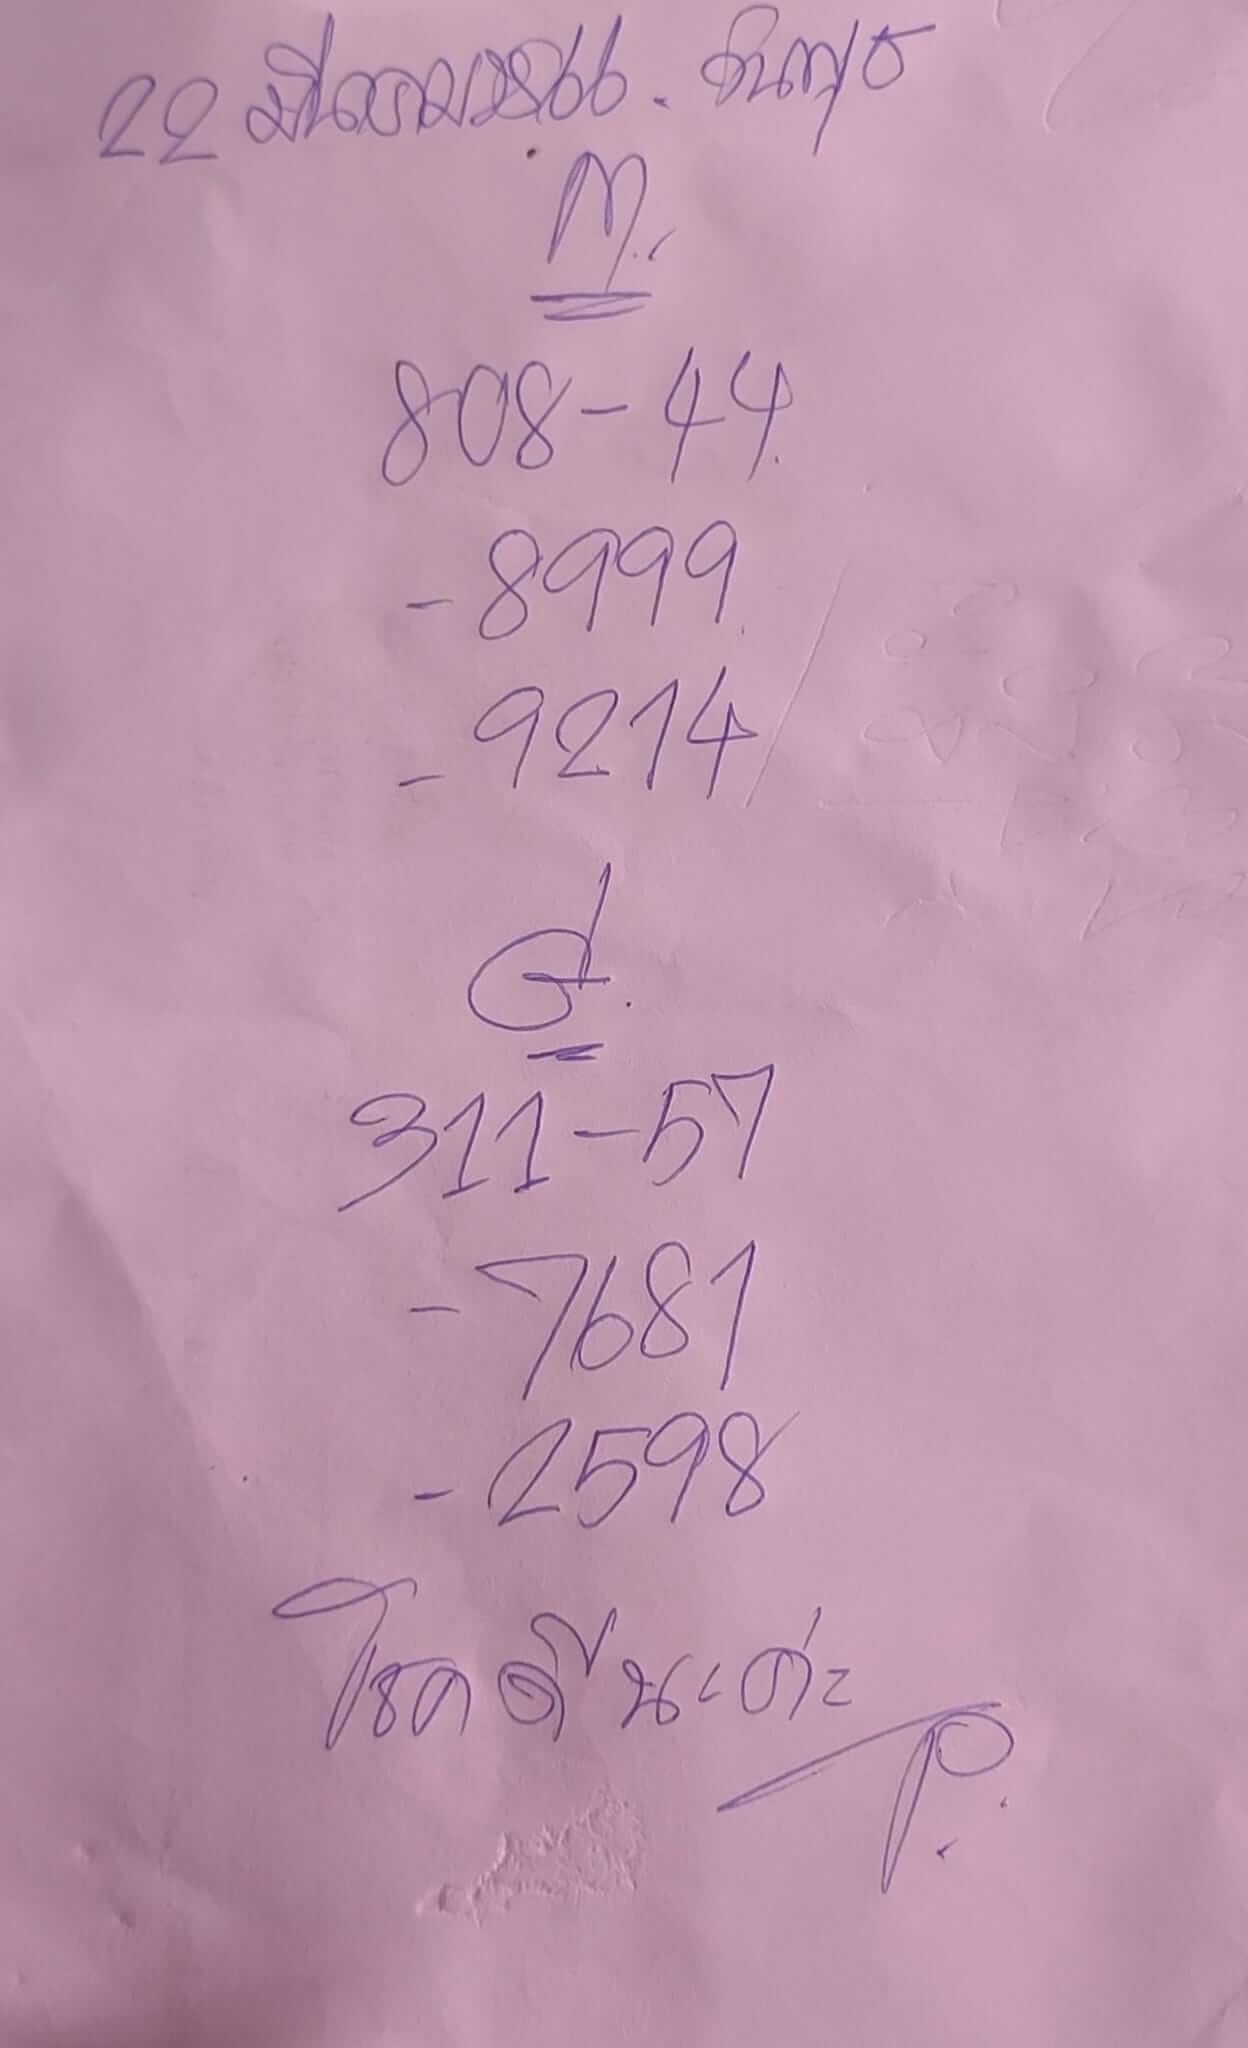 22 มีนาคม 2566. วันพุธ
ท.
808-44.
-8999.
-9214/
ด.
311-57
-7681
-2598
โชคดีนะค่ะ
P.